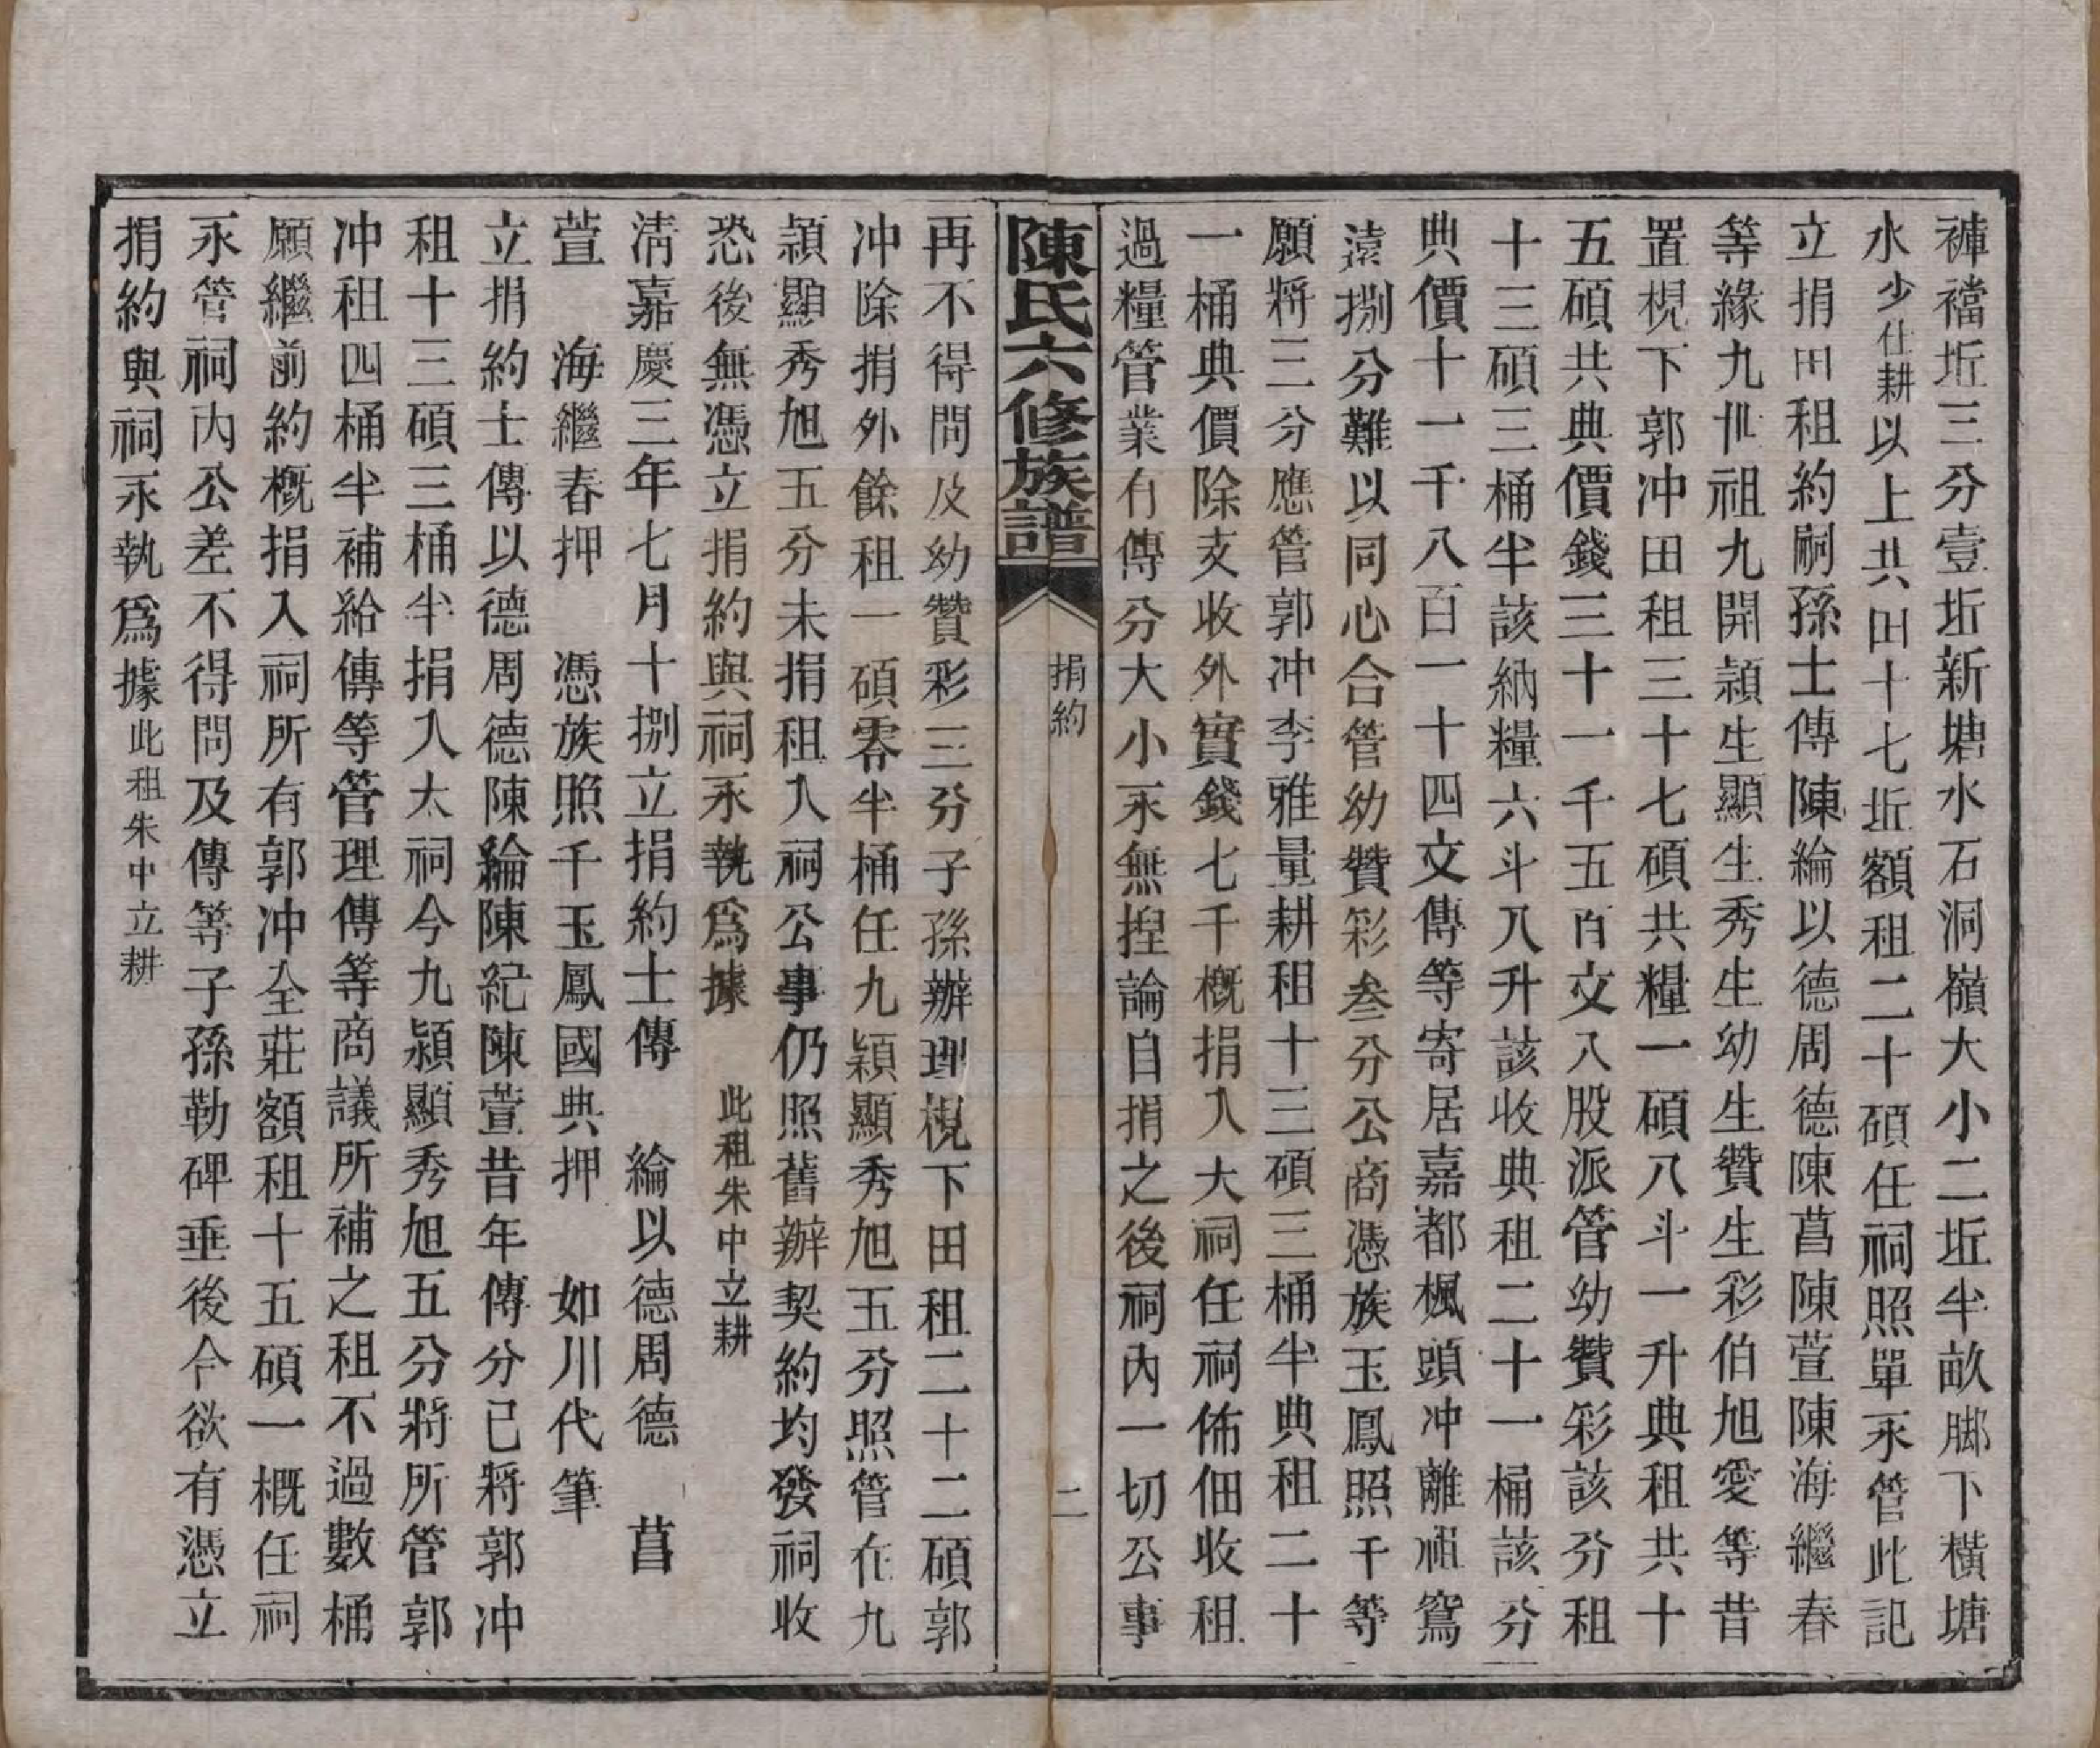 褲襠坵三分壹坵新塘水石洞嶺大小二坵半畝腳下橫塘
水少仕耕以上共田十七坵額租二十碩任祠照單永管此記
立捐田租約嗣孫士傳陳綸以德周德陳菖陳萱陳海繼春
等緣九世祖九開潁生顯生秀生幼生贊生彩伯旭愛等昔
置梘下郭冲田租三十七碩共糧一碩八斗一升典租共十
五碩共典價錢三十一千五百文八股派管幼贊彩該分租
十三碩三桶半該納糧六斗八升該收典租二十一桶該分
典價十一千八百一十四文傳等寄居嘉都楓頭冲離祖窵
遠捌分難以同心合管幼贊彩叁分公商憑族玉鳳照千等
願將三分應管郭冲李雅量耕租十三碩三桶半典租二十
一桶典價除支收外實錢七千概捐入大祠任祠佈佃收租
過糧管業有傳分大小永無揑論自捐之後祠內一切公事
陳氏六修族譜
捐約
二
再不得問及幼贊彩三分子孫辦理梘下田租二十二碩郭
冲除捐外餘租一碩零半桶任九潁顯秀旭五分照管在九
潁顯秀旭五分未捐租入祠公事仍照舊辦契約均發祠收
恐後無憑立捐約與祠永執爲據　此租朱中立耕
淸嘉慶三年七月十捌立捐約士傳　綸以德周德　菖
萱　海繼春押　憑族照千玉鳳國典押　如川代筆
立捐約士傳以德周德陳綸陳紀陳萱昔年傳分已將郭冲
租十三碩三桶半捐入太祠今九潁顯秀旭五分將所管郭
冲租四桶半補給傳等管理傳等商議所補之租不過數桶
願繼前約概捐入祠所有郭冲全莊額租十五碩一概任祠
永管祠內公差不得問及傳等子孫勒碑垂後今欲有憑立
捐約與祠永執爲據此租朱中立耕